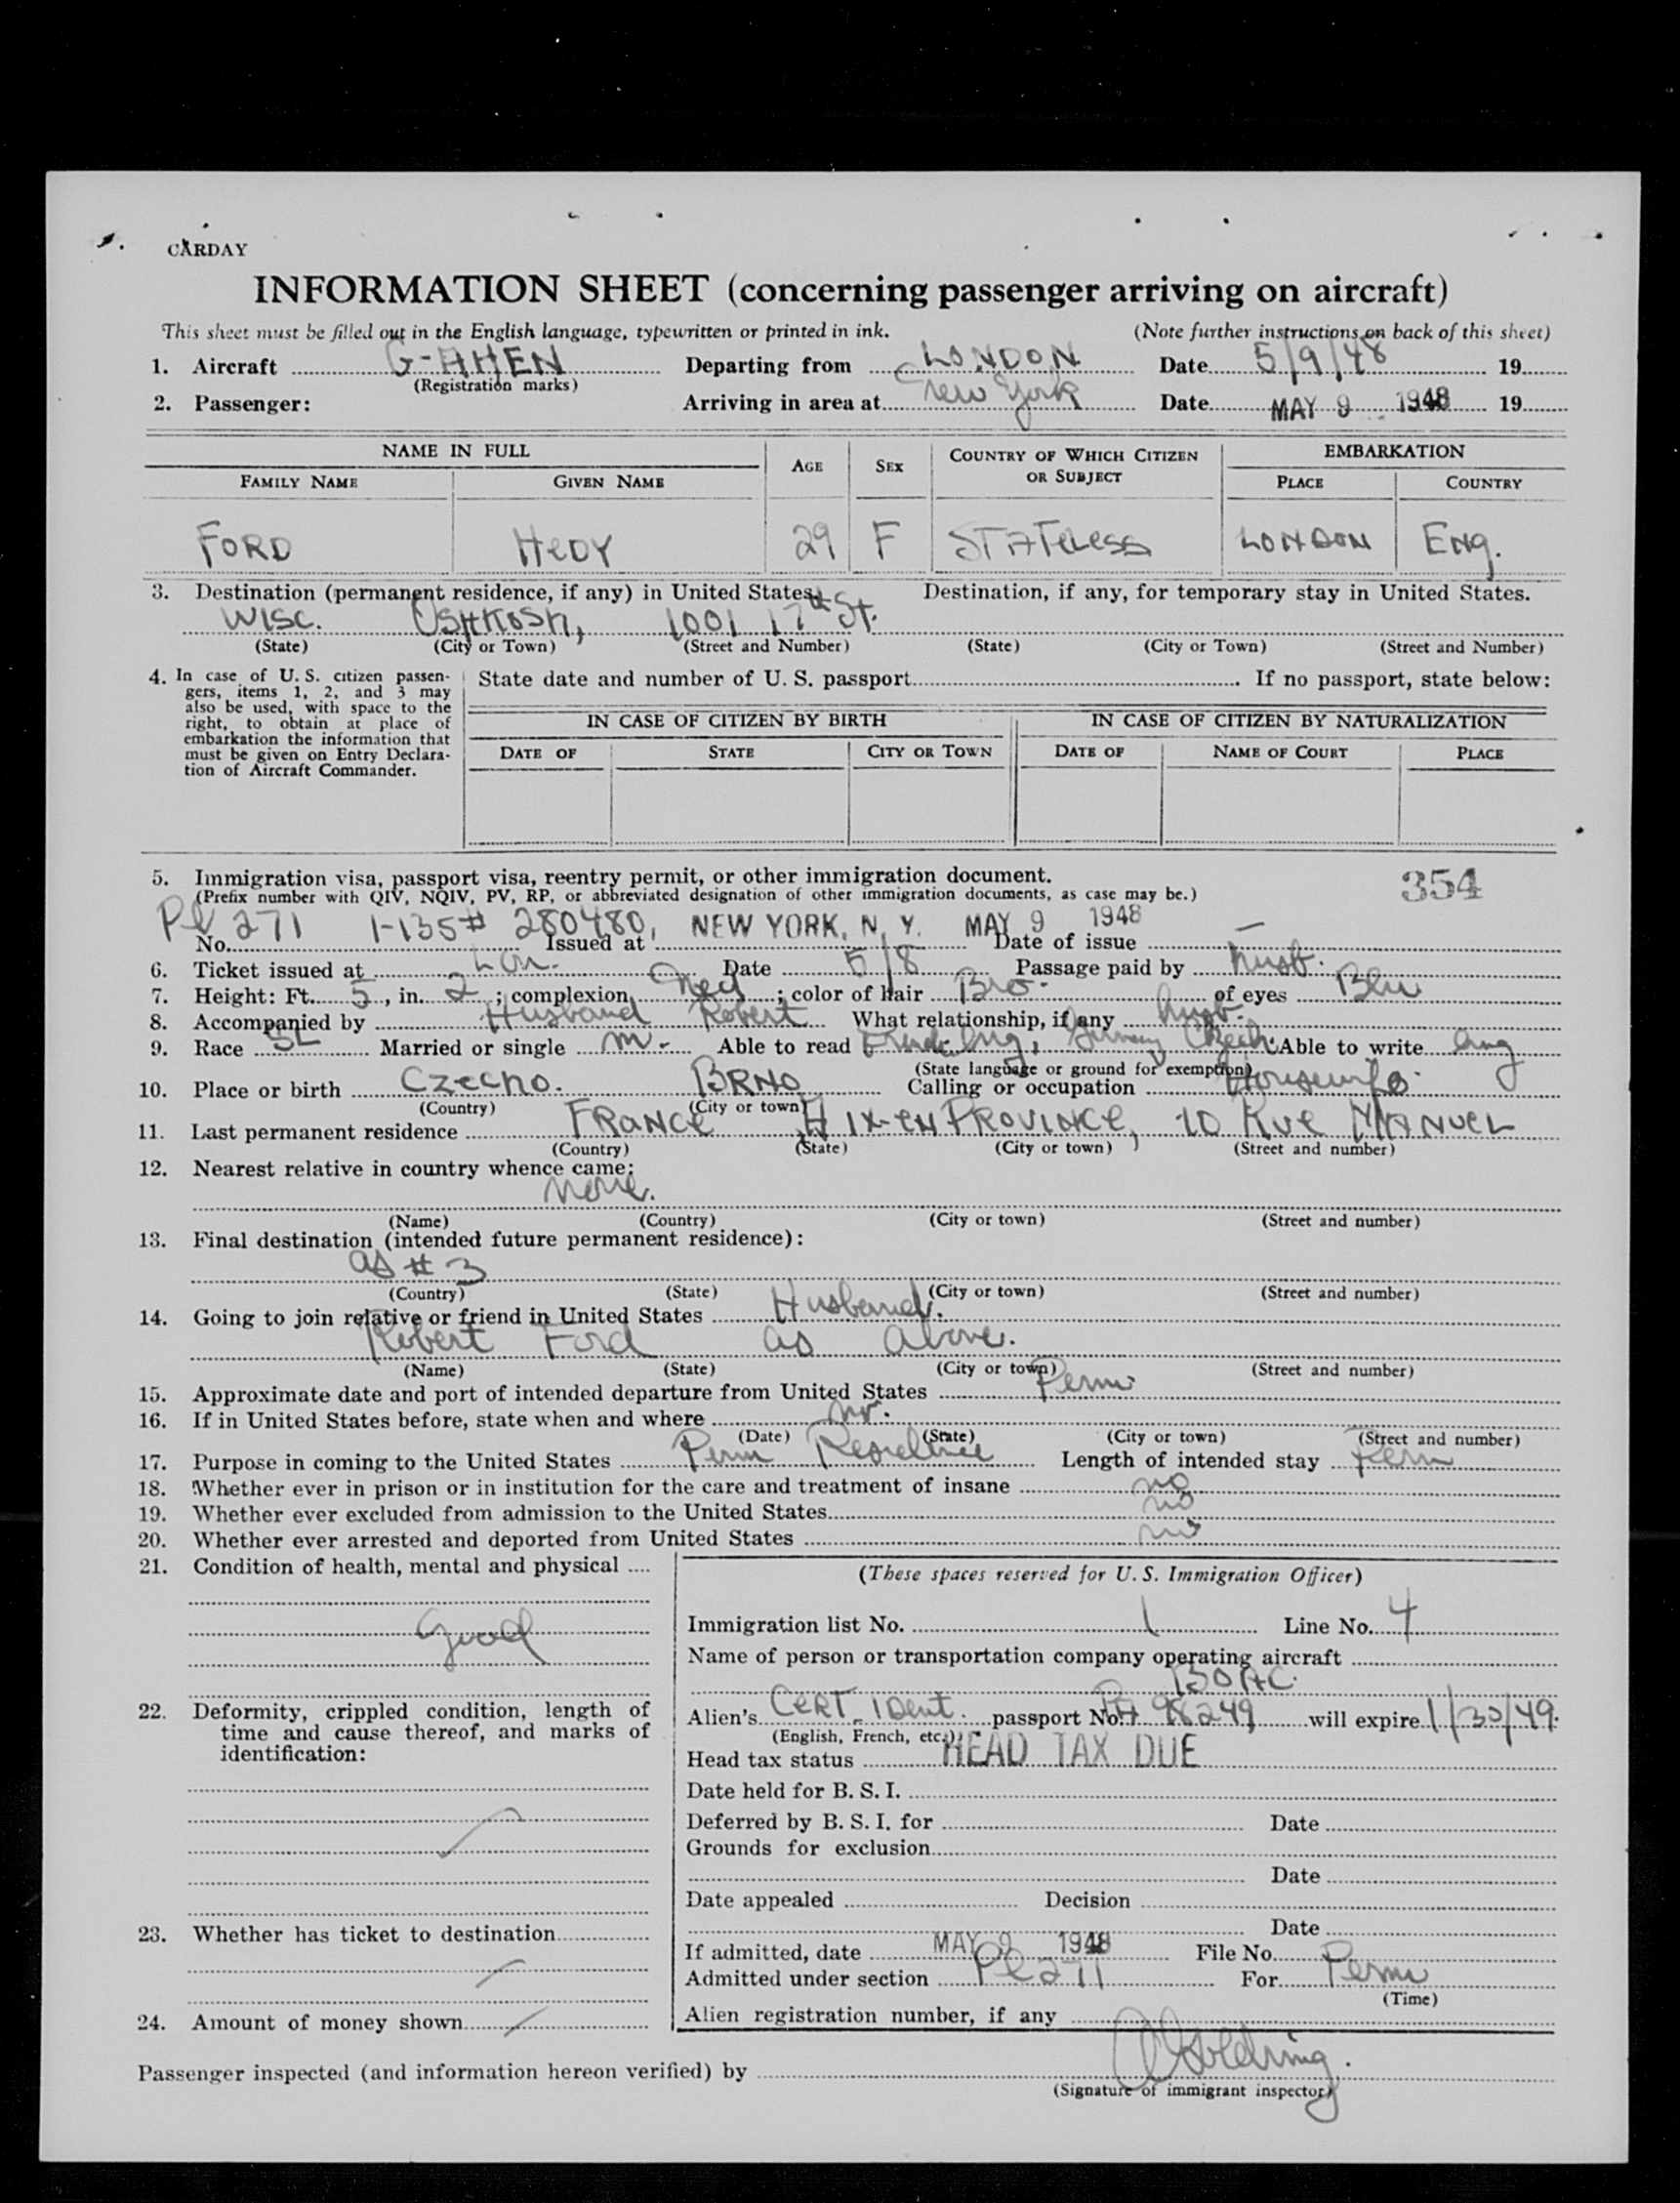 CARDAY
INFORMATION SHEET (concerning passenger arriving on aircraft)
This sheet must be filled out in the English language, typewritten or printed in ink. (Note further instructions on back of this sheet)
1. Aircraft G-AHEN Departing from LONDON Date 5/9/48 19
(Registration marks)
2. Passenger: Arriving in area at New York Date MAY 9 1948 19
NAME IN FULL AGE SEX COUNTRY OF WHICH CITIZEN OR SUBJECT EMBARKATION
FAMILY NAME GIVEN NAME PLACE COUNTRY
FORD HEDY 29 F STATELESS LONDON ENG.
3. Destination (permanent residence, if any) in United States. Destination, if any, for temporary stay in United States.
WISC. OSHKOSH, 1001 17th St.
(State) (City or Town) (Street and Number) (State) (City or Town) (Street and Number)
4. In case of U. S. citizen passen-
gers, items 1, 2, and 3 may
also be used, with space to the
right, to obtain at place of
embarkation the information that
must be given on Entry Declara-
tion of Aircraft Commander.
State date and number of U. S. passport. If no passport, state below:
IN CASE OF CITIZEN BY BIRTH IN CASE OF CITIZEN BY NATURALIZATION
DATE OF STATE CITY OR TOWN DATE OF NAME OF COURT PLACE
5. Immigration visa, passport visa, reentry permit, or other immigration document. 354
(Prefix number with QIV, NQIV, PV, RP, or abbreviated designation of other immigration documents, as case may be.)
PL 271 I-135# 280480, NEW YORK, N. Y. MAY 9 1948
No. Issued at Date of issue —
6. Ticket issued at Lon. Date 5/8 Passage paid by husb.
7. Height: Ft. 5, in. 2; complexion Med; color of hair Bro. of eyes Blu
8. Accompanied by Husband Robert What relationship, if any husb.
9. Race SL Married or single M. Able to read French, Eng, German, Czech Able to write Eng
(State language or ground for exemption)
10. Place or birth Czecho. BRNO Calling or occupation Housewife.
(Country) (City or town)
11. Last permanent residence FRANCE AIX-EN PROVINCE, 10 RUE MANUEL
(Country) (State) (City or town) (Street and number)
12. Nearest relative in country whence came:
None.
(Name) (Country) (City or town) (Street and number)
13. Final destination (intended future permanent residence):
as # 3
(Country) (State) (City or town) (Street and number)
14. Going to join relative or friend in United States Husband.
Robert Ford as above.
(Name) (State) (City or town) (Street and number)
15. Approximate date and port of intended departure from United States Perm
16. If in United States before, state when and where no.
(Date) (State) (City or town) (Street and number)
17. Purpose in coming to the United States Perm Residence Length of intended stay Perm
18. Whether ever in prison or in institution for the care and treatment of insane no
19. Whether ever excluded from admission to the United States no
20. Whether ever arrested and deported from United States no
21. Condition of health, mental and physical
Good
22. Deformity, crippled condition, length of
time and cause thereof, and marks of
identification:
23. Whether has ticket to destination
24. Amount of money shown
(These spaces reserved for U. S. Immigration Officer)
Immigration list No. 1 Line No. 4
Name of person or transportation company operating aircraft
BOAC.
Alien's CERT. IDENT. passport No. 98249 will expire 1/30/49.
(English, French, etc.)
Head tax status HEAD TAX DUE
Date held for B. S. I.
Deferred by B. S. I. for Date
Grounds for exclusion
Date
Date appealed Decision
Date
If admitted, date MAY 9 1948 File No.
Admitted under section PL 271 For Perm
(Time)
Alien registration number, if any
Passenger inspected (and information hereon verified) by Golding.
(Signature of immigrant inspector)